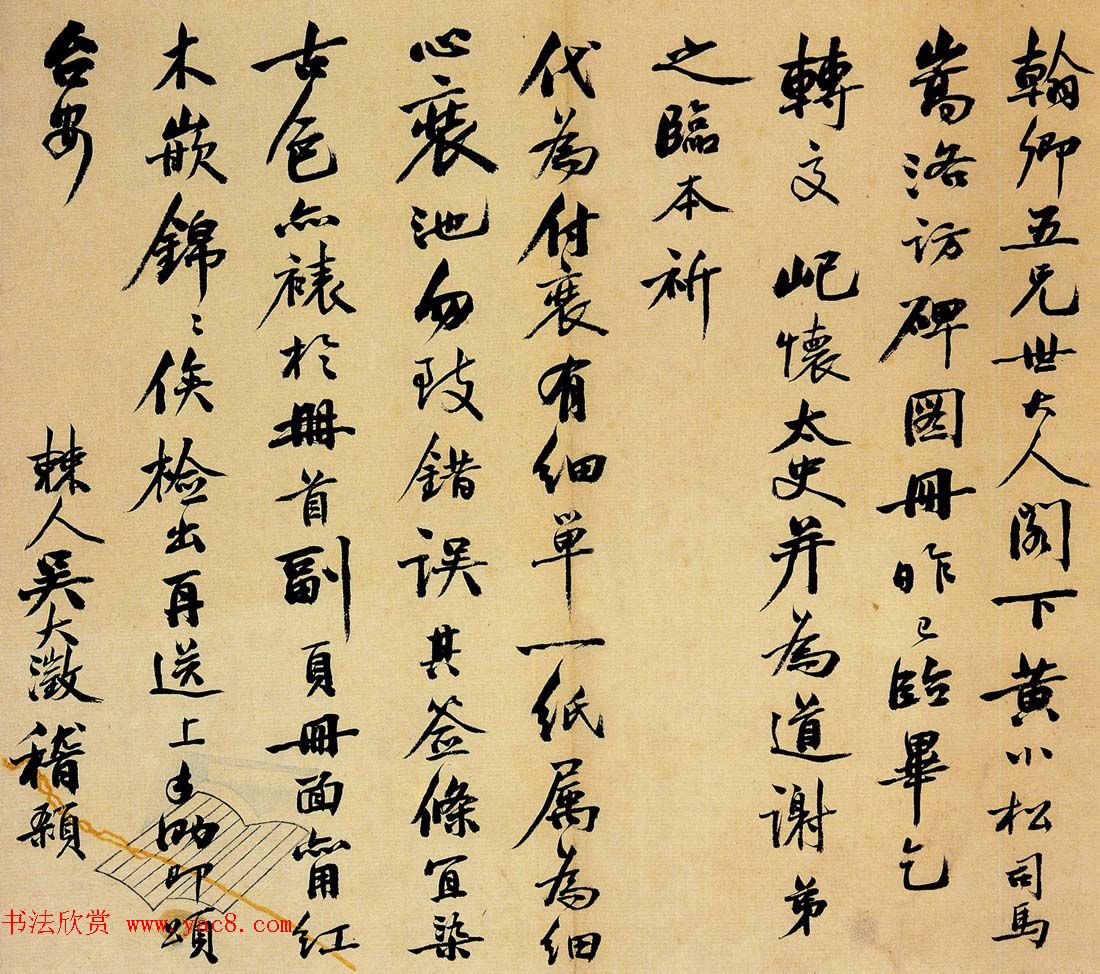 翰卿五兄世大人閣下黄小松司馬
嵩洛訪碑圖冊昨已臨畢乞
轉交屺懷太史并為道謝弟
之臨本祈
代為付裝有細單一紙属為細
心裝池勿致錯誤其签條宜染
古色亦裱於冊首副頁冊面亦用红
木嵌錦〻俟檢出再送上手泐即頌
台安
棘人吴大澂稽顙
书法欣赏 www.yac8.com